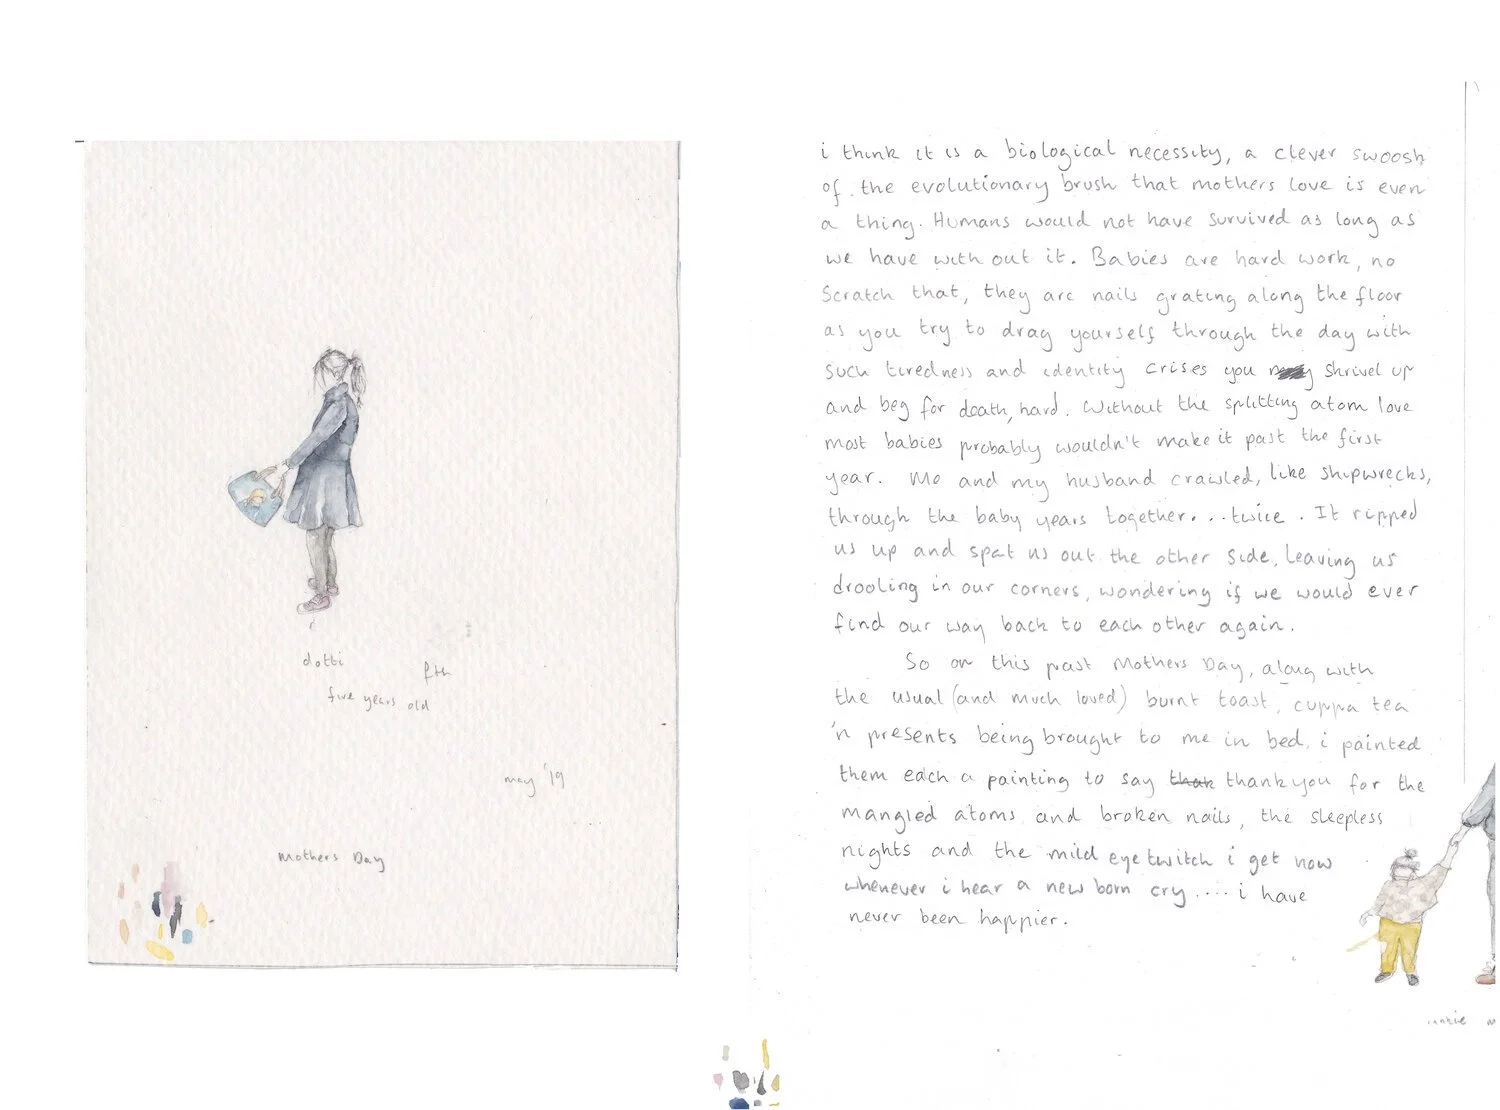 dotti
fth
five years old
may '19
Mothers Day
i think it is a biological necessity, a clever swoosh
of the evolutionary brush that mothers love is even
a thing. Humans would not have survived as long as
we have with out it. Babies are hard work, no
Scratch that, they are nails grating along the floor
as you try to drag yourself through the day with
such tiredness and identity crises you shrivel up
and beg for death, hard. Without the splitting atom love
most babies probably wouldn't make it past the first
year. Me and my husband crawled, like shipwrecks,
through the baby years together... twice. It ripped
us up and spat us out the other side, leaving us
drooling in our corners, wondering if we would ever
find our way back to each other again.
So on this past Mothers Day, along with
the usual (and much loved) burnt toast, cuppa tea
'n presents being brought to me in bed, i painted
them each a painting to say thank you for the
mangled atoms and broken nails, the sleepless
nights and the mild eye twitch i get now
whenever i hear a new born cry.... i have
never been happier.